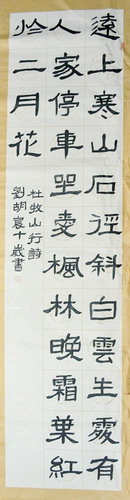 遠上寒山石徑斜白雲生處有
人家停車坐愛楓林晚霜葉紅
於二月花
杜牧山行詩
劉胡宸十歲書